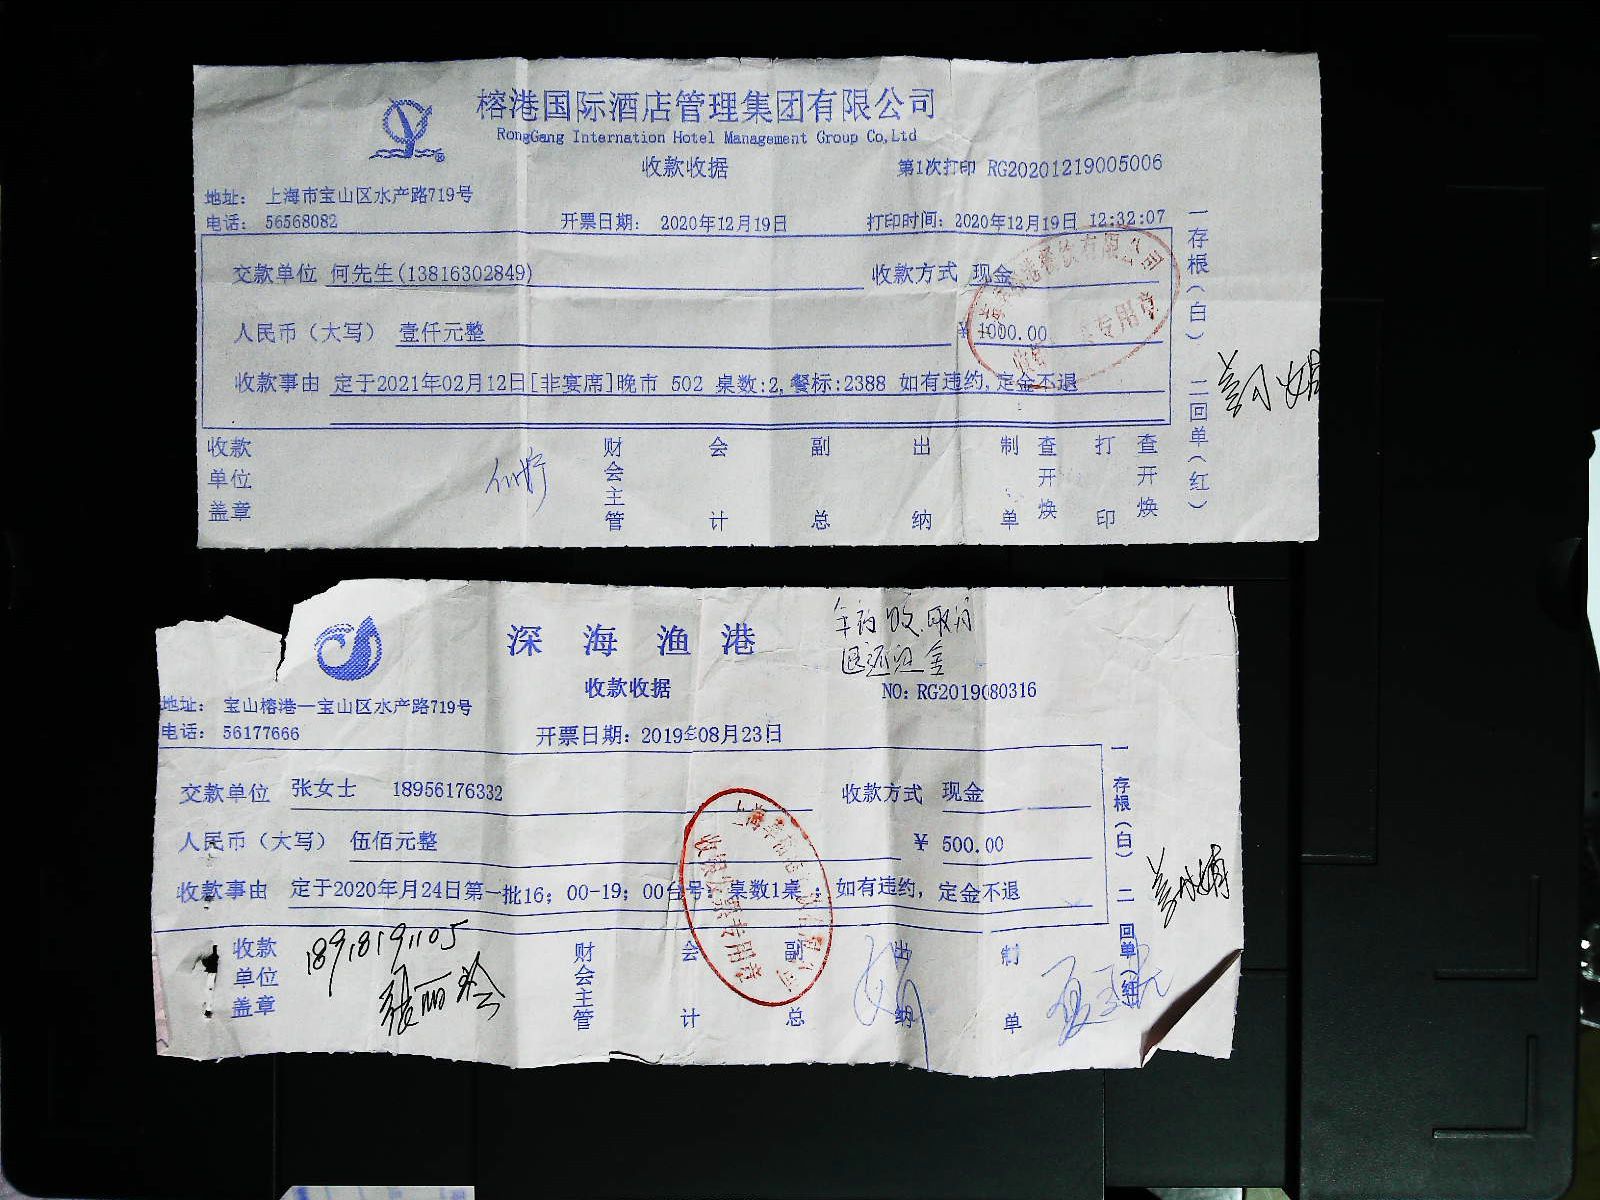 榕港国际酒店管理集团有限公司
RongGang Internation Hotel Management Group Co,Ltd
收款收据
第1次打印 RG20201219005006
地址： 上海市宝山区水产路719号
电话： 56568082
开票日期： 2020年12月19日
打印时间： 2020年12月19日 12:32:07
交款单位 何先生(13816302849)
收款方式 现金
人民币（大写） 壹仟元整
¥ 1000.00
收款事由 定于2021年02月12日[非宴席]晚市 502 桌数:2,餐标:2388 如有违约,定金不退
一存根（白） 二回单（红）
收款单位盖章
财会主管
会计
副总
出纳
制单
查开焕
打印
查开焕
深海渔港
收款收据
退还定金
NO: RG2019080316
地址： 宝山榕港—宝山区水产路719号
电话： 56177666
开票日期： 2019年08月23日
交款单位 张女士 18956176332
收款方式 现金
人民币（大写） 伍佰元整
¥ 500.00
收款事由 定于2020年月24日第一批16；00-19；00台号： 桌数1桌 ；如有违约，定金不退
一 存根（白） 二 回单（红）
收款单位盖章
18918191105
张丽玲
财会主管
会计
副总
出纳
制单